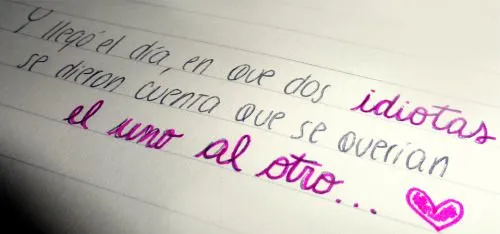 Y llegó el día, en que dos idiotas
se dieron cuenta que se querían
el uno al otro...